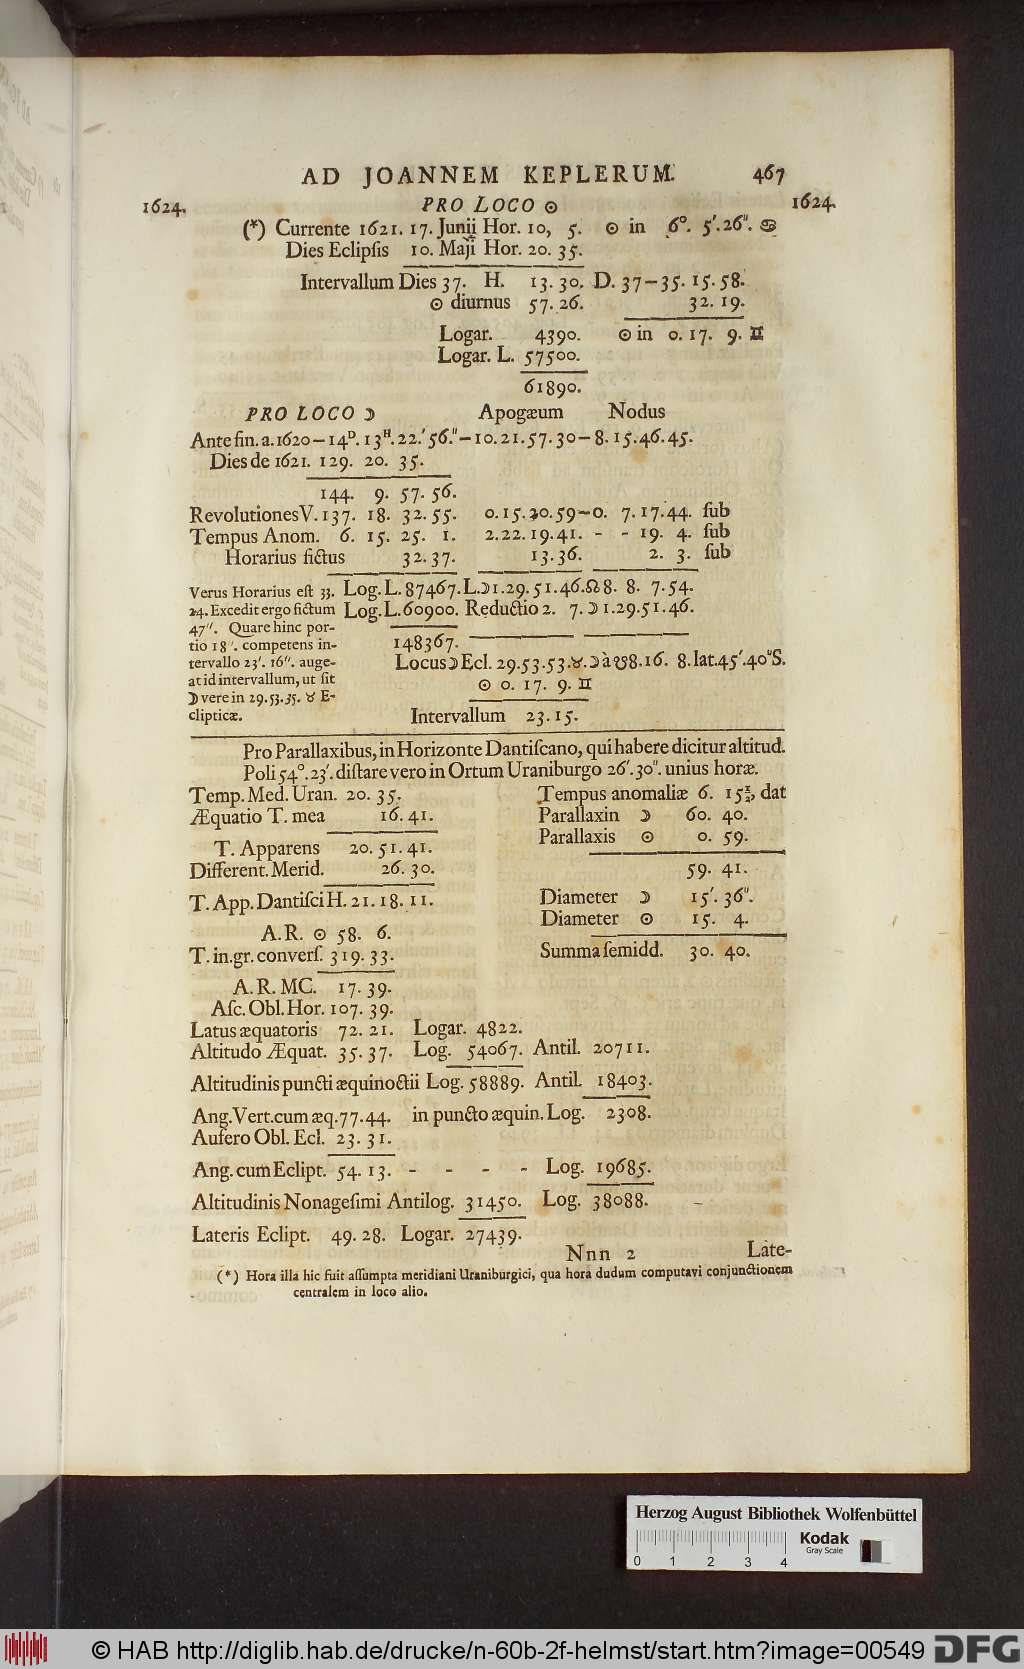 AD JOANNEM KEPLERUM. 467
1624. PRO LOCO ☉ 1624.
(*) Currente 1621. 17. Junij Hor. 10, 5. ☉ in 6°. 5′. 26″. ♋
Dies Eclipſis 10. Maji Hor. 20. 35.
Intervallum Dies 37. H. 13. 30. D. 37—35. 15. 58.
☉ diurnus 57. 26. 32. 19.
Logar. 4390. ☉ in 0. 17. 9. ♊
Logar. L. 57500.
61890.
PRO LOCO ☽ Apogæum Nodus
Ante fin. a. 1620—14ᴰ. 13ᴴ. 22.′ 56.″—10. 21. 57. 30—8. 15. 46. 45.
Dies de 1621. 129. 20. 35.
144. 9. 57. 56.
Revolutiones V. 137. 18. 32. 55. 0. 15. 30. 59—0. 7. 17. 44. ſub
Tempus Anom. 6. 15. 25. 1. 2. 22. 19. 41. - - 19. 4. ſub
Horarius fictus 32. 37. 13. 36. 2. 3. ſub
Verus Horarius eſt 33. Log. L. 87467. L. ☽ 1. 29. 51. 46. ☊ 8. 8. 7. 54.
24. Excedit ergo fictum Log. L. 60900. Reductio 2. 7. ☽ 1. 29. 51. 46.
47″. Quare hinc por-
tio 18″. competens in- 148367.
tervallo 23′. 16″. auge- Locus ☽ Ecl. 29. 53. 53. ♉. ☽ à ☋ 8. 16. 8. lat. 45′. 40″ S.
at id intervallum, ut ſit ☉ 0. 17. 9. ♊
☽ vere in 29. 53. 35. ♉ E-
clipticæ. Intervallum 23. 15.
Pro Parallaxibus, in Horizonte Dantiſcano, qui habere dicitur altitud.
Poli 54°. 23′. diſtare vero in Ortum Uraniburgo 26′. 30″. unius horæ.
Temp. Med. Uran. 20. 35. Tempus anomaliæ 6. 15½, dat
Æquatio T. mea 16. 41. Parallaxin ☽ 60. 40.
Parallaxis ☉ 0. 59.
T. Apparens 20. 51. 41.
Different. Merid. 26. 30. 59. 41.
T. App. Dantiſci H. 21. 18. 11. Diameter ☽ 15′. 36″.
Diameter ☉ 15. 4.
A. R. ☉ 58. 6.
T. in. gr. converſ. 319. 33. Summa ſemidd. 30. 40.
A. R. MC. 17. 39.
Aſc. Obl. Hor. 107. 39.
Latus æquatoris 72. 21. Logar. 4822.
Altitudo Æquat. 35. 37. Log. 54067. Antil. 20711.
Altitudinis puncti æquinoctii Log. 58889. Antil. 18403.
Ang. Vert. cum æq. 77. 44. in puncto æquin. Log. 2308.
Aufero Obl. Ecl. 23. 31.
Ang. cum Eclipt. 54. 13. - - - - Log. 19685.
Altitudinis Nonageſimi Antilog. 31450. Log. 38088.
Lateris Eclipt. 49. 28. Logar. 27439.
Nnn 2 Late-
(*) Hora illa hic fuit aſſumpta meridiani Uraniburgici, qua hora dudum computavi conjunctionem
centralem in loco alio.
Herzog August Bibliothek Wolfenbüttel
Kodak
Gray Scale
0 1 2 3 4
© HAB http://diglib.hab.de/drucke/n-60b-2f-helmst/start.htm?image=00549 DFG